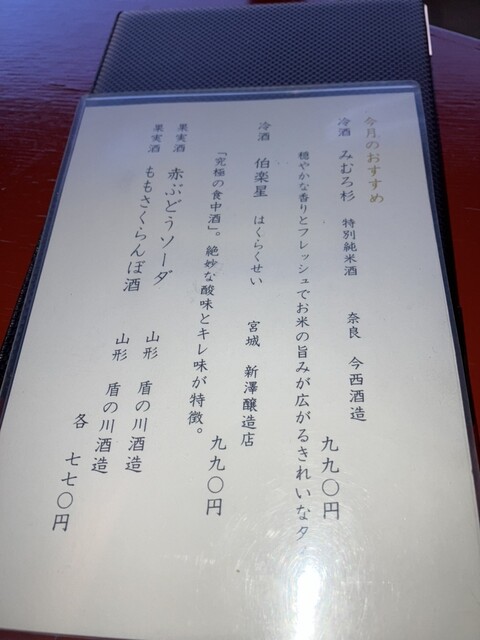 今月のおすすめ
冷酒 みむろ杉 特別純米酒 奈良 今西酒造
九九〇円
穏やかな香りとフレッシュでお米の旨みが広がるきれいなタ
冷酒 伯楽星 はくらくせい 宮城 新澤醸造店
九九〇円
「究極の食中酒」。絶妙な酸味とキレ味が特徴。
果実酒 赤ぶどうソーダ 山形 盾の川酒造
果実酒 ももさくらんぼ酒 山形 盾の川酒造
各 七七〇円